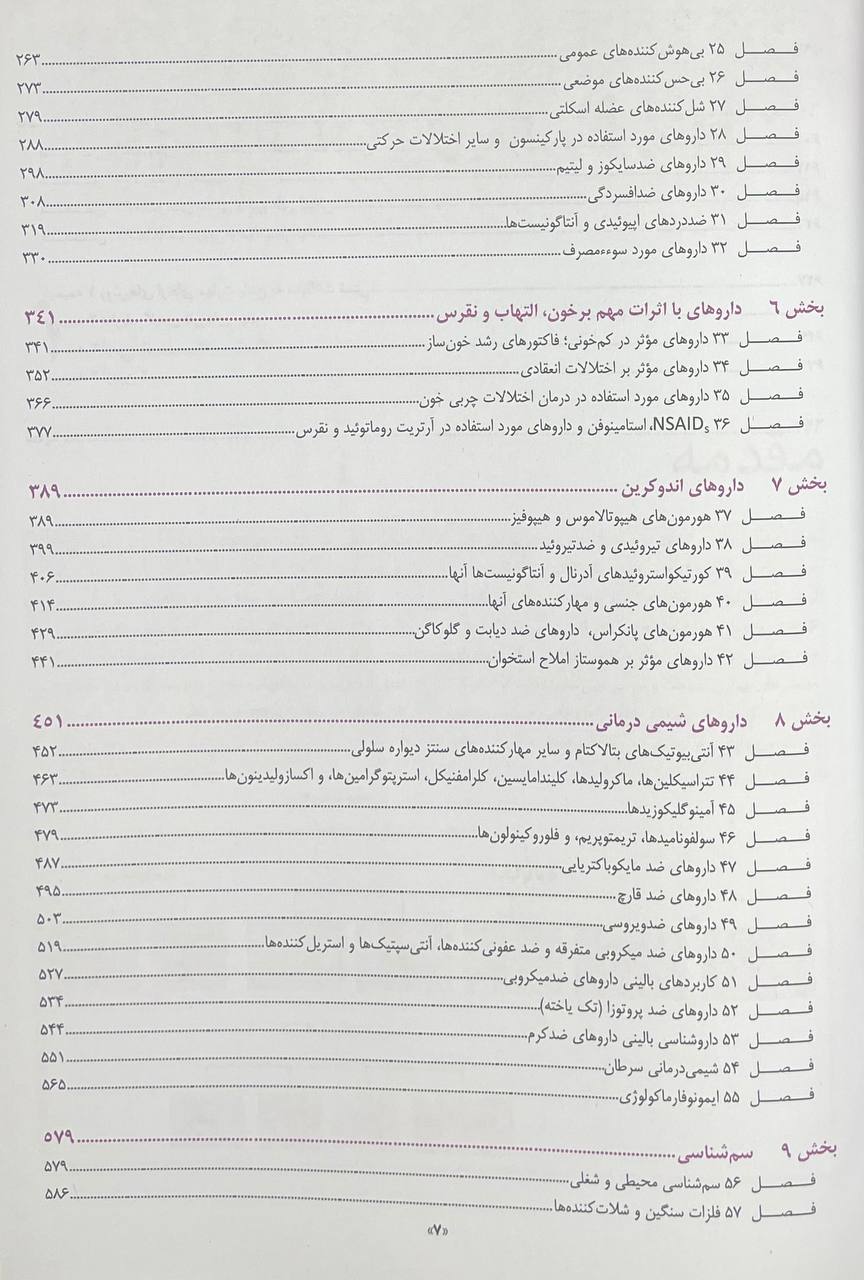 فـــصــــل ۲۵ بی‌هوش‌کننده‌های عمومی ........ ۲۶۳
فـــصــــل ۲۶ بی‌حس‌کننده‌های موضعی ........ ۲۷۳
فـــصــــل ۲۷ شل‌کننده‌های عضله اسکلتی ........ ۲۷۹
فـــصــــل ۲۸ داروهای مورد استفاده در پارکینسون و سایر اختلالات حرکتی ........ ۲۸۸
فـــصــــل ۲۹ داروهای ضدسایکوز و لیتیم ........ ۲۹۸
فـــصــــل ۳۰ داروهای ضدافسردگی ........ ۳۰۸
فـــصــــل ۳۱ ضددردهای اپیوئیدی و آنتاگونیست‌ها ........ ۳۱۹
فـــصــــل ۳۲ داروهای مورد سوءمصرف ........ ۳۳۰
بخش ۶ داروهای با اثرات مهم برخون، التهاب و نقرس ........ ۳۴۱
فـــصــــل ۳۳ داروهای مؤثر در کم‌خونی؛ فاکتورهای رشد خون‌ساز ........ ۳۴۱
فـــصــــل ۳۴ داروهای مؤثر بر اختلالات انعقادی ........ ۳۵۲
فـــصــــل ۳۵ داروهای مورد استفاده در درمان اختلالات چربی خون ........ ۳۶۶
فـــصــــل ۳۶ NSAIDs، استامینوفن و داروهای مورد استفاده در آرتریت روماتوئید و نقرس ........ ۳۷۷
بخش ۷ داروهای اندوکرین ........ ۳۸۹
فـــصــــل ۳۷ هورمون‌های هیپوتالاموس و هیپوفیز ........ ۳۸۹
فـــصــــل ۳۸ داروهای تیروئیدی و ضدتیروئید ........ ۳۹۹
فـــصــــل ۳۹ کورتیکواستروئیدهای آدرنال و آنتاگونیست‌ها آنها ........ ۴۰۶
فـــصــــل ۴۰ هورمون‌های جنسی و مهارکننده‌های آنها ........ ۴۱۴
فـــصــــل ۴۱ هورمون‌های پانکراس، داروهای ضد دیابت و گلوکاگن ........ ۴۲۹
فـــصــــل ۴۲ داروهای مؤثر بر هموستاز املاح استخوان ........ ۴۴۱
بخش ۸ داروهای شیمی درمانی ........ ۴۵۱
فـــصــــل ۴۳ آنتی‌بیوتیک‌های بتالاکتام و سایر مهارکننده‌های سنتز دیواره سلولی ........ ۴۵۲
فـــصــــل ۴۴ تتراسیکلین‌ها، ماکرولیدها، کلیندامایسین، کلرامفنیکل، استرپتوگرامین‌ها، و اکسازولیدینون‌ها ........ ۴۶۳
فـــصــــل ۴۵ آمینوگلیکوزیدها ........ ۴۷۳
فـــصــــل ۴۶ سولفونامیدها، تریمتوپریم، و فلوروکینولون‌ها ........ ۴۷۹
فـــصــــل ۴۷ داروهای ضد مایکوباکتریایی ........ ۴۸۷
فـــصــــل ۴۸ داروهای ضد قارچ ........ ۴۹۵
فـــصــــل ۴۹ داروهای ضدویروسی ........ ۵۰۳
فـــصــــل ۵۰ داروهای ضد میکروبی متفرقه و ضد عفونی‌کننده‌ها، آنتی‌سپتیک‌ها و استریل‌کننده‌ها ........ ۵۱۹
فـــصــــل ۵۱ کاربردهای بالینی داروهای ضدمیکروبی ........ ۵۲۷
فـــصــــل ۵۲ داروهای ضد پروتوزا (تک یاخته) ........ ۵۳۴
فـــصــــل ۵۳ داروشناسی بالینی داروهای ضدکرم ........ ۵۴۴
فـــصــــل ۵۴ شیمی‌درمانی سرطان ........ ۵۵۱
فـــصــــل ۵۵ ایمونوفارماکولوژی ........ ۵۶۵
بخش ۹ سم‌شناسی ........ ۵۷۹
فـــصــــل ۵۶ سم‌شناسی محیطی و شغلی ........ ۵۷۹
فـــصــــل ۵۷ فلزات سنگین و شلات‌کننده‌ها ........ ۵۸۶
«۷»